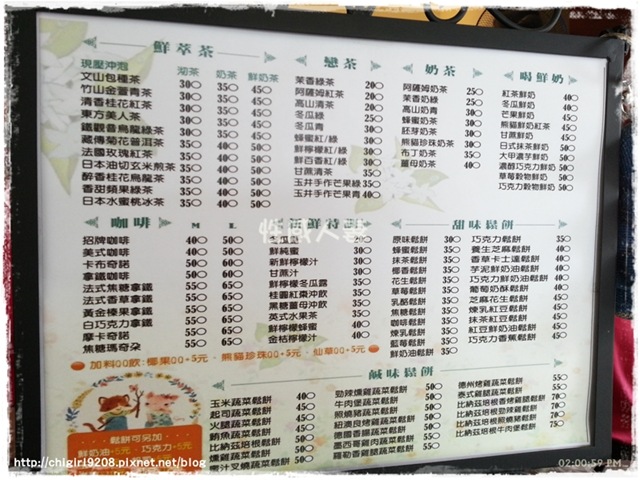 鮮萃茶
現壓沖泡 沏茶 奶茶 鮮奶茶
文山包種茶 30 35 45
竹山金萱青茶 30 35 45
清香桂花紅茶 30 35 45
東方美人茶 30 35 45
鐵觀音烏龍綠茶 30 35 45
藏傳菊花普洱茶 35 40 50
法國玫瑰紅茶 35 40 50
日本油切玄米煎茶 35 40 50
醉香桂花烏龍茶 35 40 50
香甜蘋果綠茶 35 40 50
日本水蜜桃冰茶 35 40 50
戀茶
茉香綠茶 20
阿薩姆紅茶 20
高山清茶 20
冬瓜綠 25
冬瓜青
蜂蜜紅/綠
鮮檸檬紅/綠
鮮百香紅/綠
甘蔗清茶
玉井手作芒果綠
玉井手作芒果青
奶茶
阿薩姆奶茶 25
茉香奶綠
高山奶青
蜂蜜奶茶
胚芽奶茶
熊貓珍珠奶茶
布丁奶茶
薑母奶茶 40
喝鮮奶
紅茶鮮奶 40
冬瓜鮮奶 40
芒果鮮奶
熊貓鮮奶紅茶
甘蔗鮮奶
日式抹茶鮮奶 50
大甲濃芋鮮奶 50
濃醇巧克力鮮奶 50
草莓穀物鮮奶 50
巧克力穀物鮮奶 50
咖啡 M L
招牌咖啡 40 50
美式咖啡 40 50
卡布奇諾 50 60
拿鐵咖啡 50 60
法式焦糖拿鐵 55 65
法式香草拿鐵 55 65
黃金榛果拿鐵 55 65
白巧克力拿鐵 55 65
摩卡奇諾 55 65
焦糖瑪奇朵 55 65
冬瓜露 20
鮮純蜜
新鮮檸檬汁
甘蔗汁
鮮檸檬冬瓜露
桂圓紅棗沖飲
黑糖薑母沖飲
英式水果茶
鮮檸檬蜂蜜
金桔檸檬汁
甜味鬆餅
原味鬆餅 30
蜂蜜鬆餅 35
抹茶鬆餅 35
椰香鬆餅 35
花生鬆餅 35
草莓鬆餅 35
乳酪鬆餅 35
焦糖鬆餅 35
咖啡鬆餅 35
煉乳鬆餅 35
藍莓鬆餅
鮮奶油鬆餅 35
巧克力鬆餅 35
養生芝麻鬆餅
香草卡士達鬆餅
芋泥鮮奶油鬆餅
巧克力鮮奶油鬆餅
葡萄奶酥鬆餅
芝麻花生鬆餅
煉乳紅豆鬆餅
抹茶紅豆鬆餅
紅豆鮮奶油鬆餅
巧克力香蕉鬆餅
加料QQ飲:椰果QQ+5元、熊貓珍珠QQ+5元、仙草QQ+5元
鹹味鬆餅
玉米蔬菜鬆餅 40
起司蔬菜鬆餅 40
火腿蔬菜鬆餅
鮪魚蔬菜鬆餅
比納豆培根鬆餅
燻雞蔬菜鬆餅 50
蜜汁叉燒蔬菜鬆餅 50
勁辣燻雞蔬菜鬆餅 50
牛肉堡蔬菜鬆餅
照燒豬蔬菜鬆餅
德國香腸蔬菜鬆餅
德州烤雞蔬菜鬆餅 55
泰式雞腿蔬菜鬆餅
鬆餅可另加
鮮奶油+5元、巧克力+5元
http://chigirl9208.pixnet.net/blog
02:00:59 PM